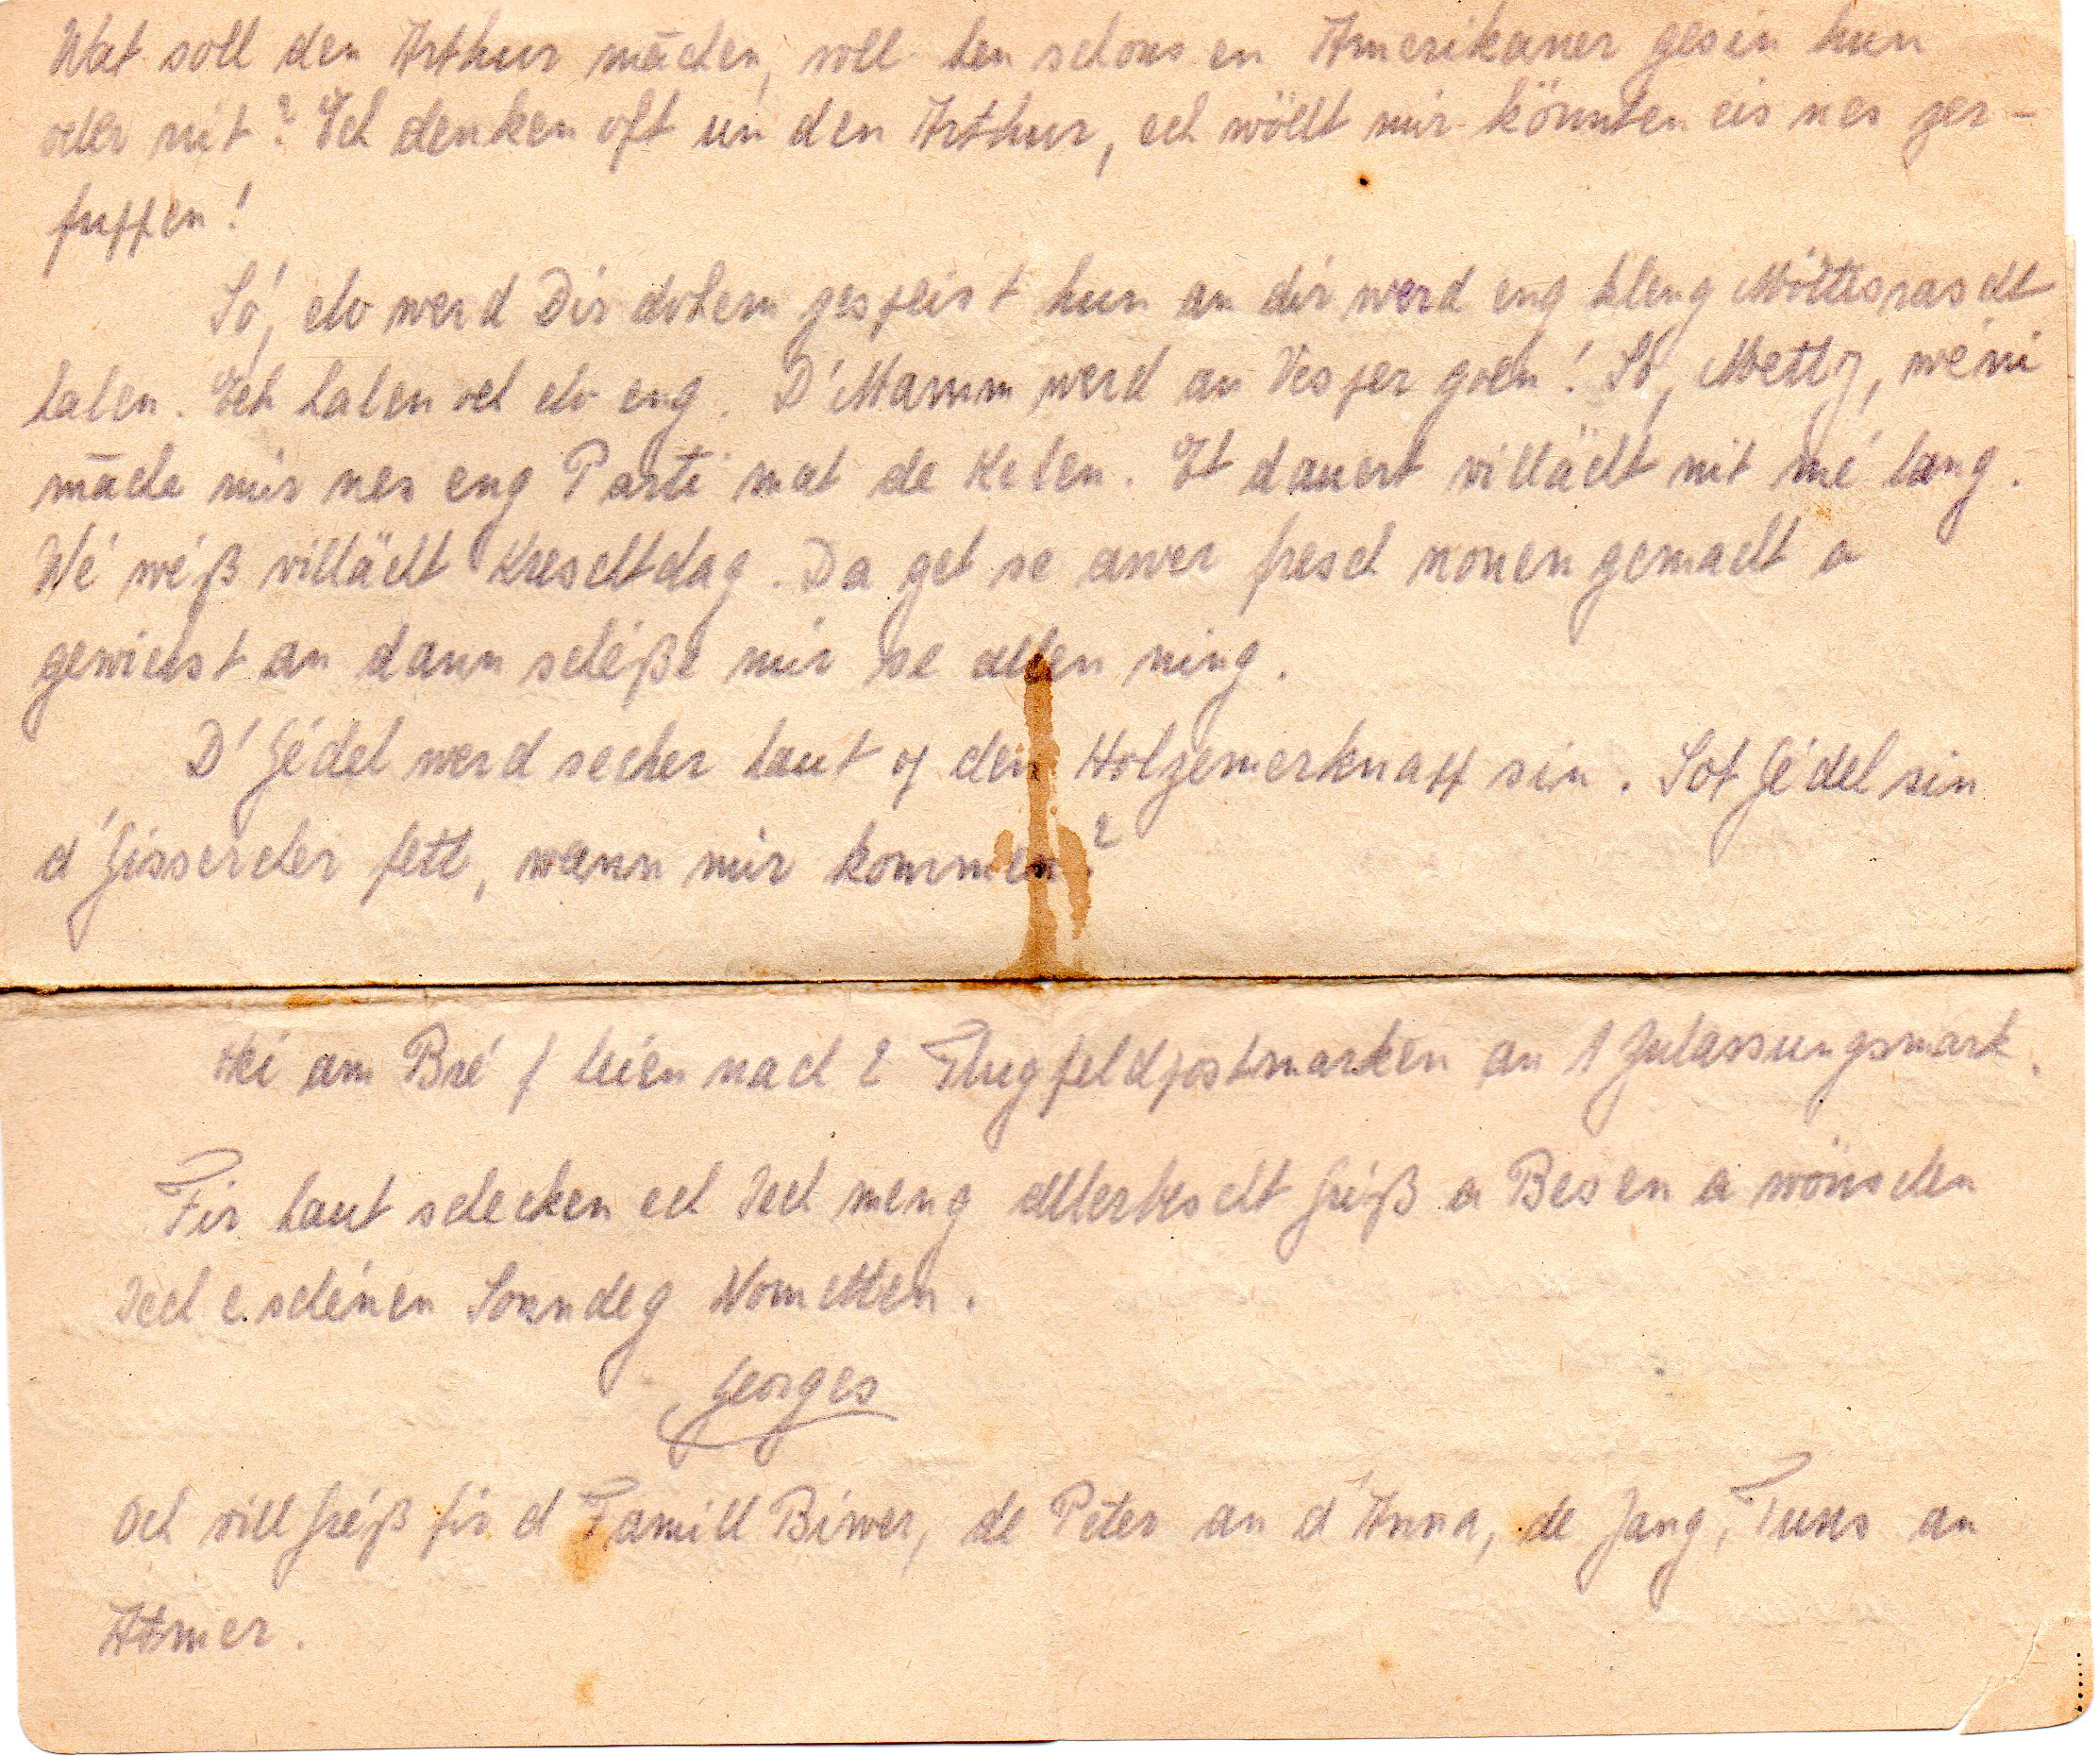 Wat soll den Arthur mächen, soll hen schons en Amerikaner gesin hun
oder nit? Ech denken oft un den Arthur, ech wöllt mir könnten eis nes zer-
fuppen!
Só, elo werd Dir dohem gespeist hun an dir werd eng kleng Möttesrascht
halen. Ech halen och elo eng. D'Mamm werd an Vesper goen! Só, Metty, wéni
māche mir nes eng Parti mat de Kelen. Et dauert villächt nit mé lang.
Wé wéß villächt Kreschtdag. Da get se awer fresch nonengemacht a
gewichst an dann schéße mir se allen ning.
D'Gédel werd secher haut op den Holzemerknapp sin. Sot Gédel sin
d'Gissercher fett, wann mir kommen?
Hei am Bréf leien nach 2 Flugfeldpostmarken an 1 Zulassungsmark.
Fir haut schecken ech Iech meng allerbescht Gréß a Besen a wönschen
Iech e schénen Sonndeg Nometten.
Georges
Och vill Gréß fir d Famill Biwer, de Péter an d'Anna, de Jang,
an